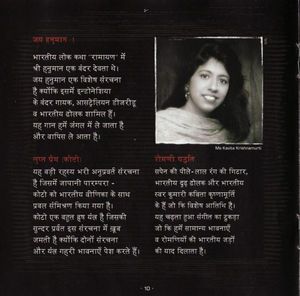 जय हनुमान ।
भारतीय लोक कथा 'रामायण' में
श्री हनुमान एक बंदर देवता थे।
जय हनुमान एक विशेष संरचना
है क्योंकि इसमें इन्डोनेशिया
के बंदर गायक, आसट्रेलियन डीजरीडू
व भारतीय ढोलक शामिल हैं।
यह गान हमें जंगल में ले जाता है
और वापिस ले आता है।
Ms Kavita Krishnamurti
लुप्त प्रेम (कोटो)
यह बड़ी रहस्य भरी अनुप्रवर्त संरचना
है जिसमें जापानी पारम्परा -
कोटो को भारतीय वीणिका के साथ
प्रबल संमिश्रण किया गया है।
कोटो एक बहुत यंत्र है जिसकी
सुन्दर प्रर्वल इस संरचना में खूब
जमती है क्योंकि दोनों संरचना
और यंत्र गहरी भावनाएँ पेश करते हैं।
रोमणी पद्धति
सपेन की पीले-लाल रंग की गिटार,
भारतीय दृढ़ ढोलक और भारतीय
स्वर कुमारी कविता कृष्णामूर्ती
के जो कि विशेष आतिथि है।
यह चढ़ता हुआ संगीत का टुकड़ा
जो कि हमें सामान्य भावनाएँ
व रोमणियों की भारतीय जड़ों
की याद दिलाता है।
- 10 -